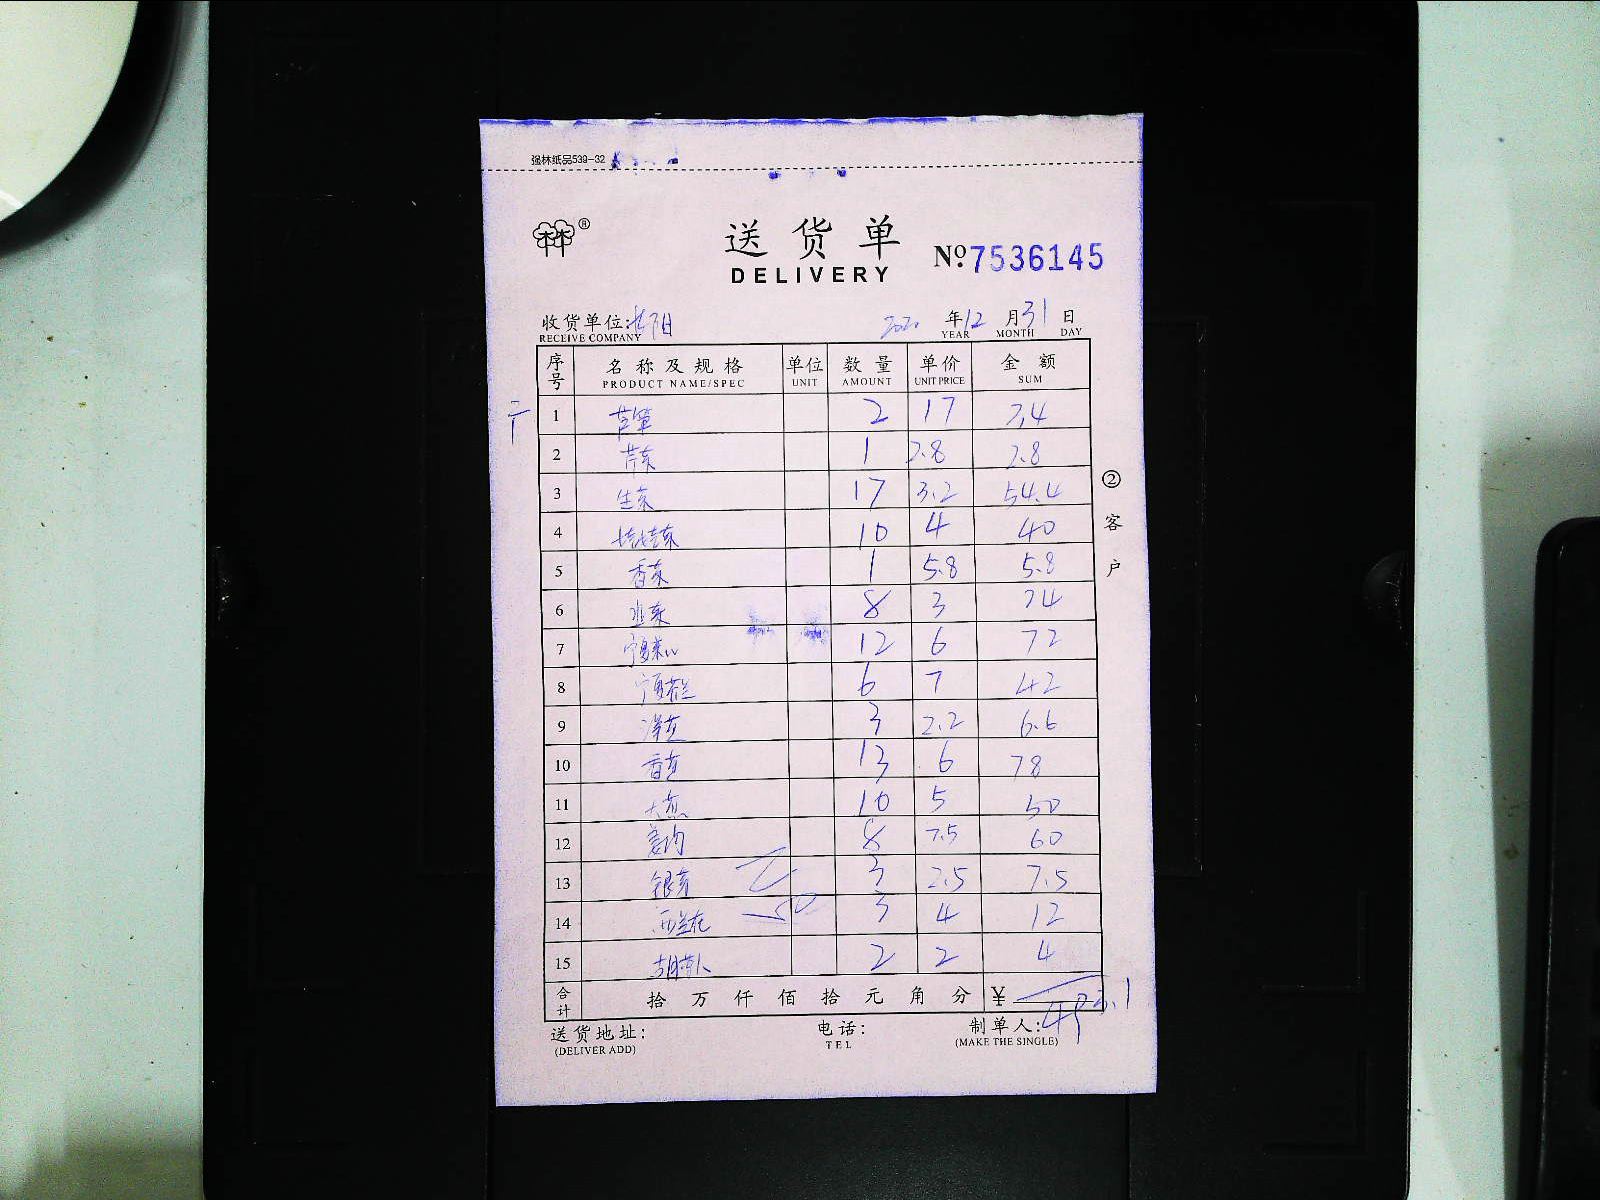 强林纸品539-32
林®
送货单
DELIVERY
№7536145
收货单位: 2020 年 12 月 31 日
RECEIVE COMPANY YEAR MONTH DAY
序号 名称及规格 单位 数量 单价 金额
PRODUCT NAME/SPEC UNIT AMOUNT UNIT PRICE SUM
1 芦笋 2 17 34
2 芹菜 1 2.8 2.8
3 生菜 17 3.2 54.4
4 10 4 40
5 香菜 1 5.8 5.8
6 韭菜 8 3 24
7 宁夏菜心 12 6 72
8 宁夏芥兰 6 7 42
9 洋芋 3 2.2 6.6
10 香芹 13 6 78
11 大葱 10 5 50
12 姜肉 8 7.5 60
13 银芽 3 2.5 7.5
14 西兰花 3 4 12
15 胡萝卜 2 2 4
合计 拾 万 仟 佰 拾 元 角 分 ¥ 493.1
②客户
送货地址: 电话: 制单人:
(DELIVER ADD) TEL (MAKE THE SINGLE)